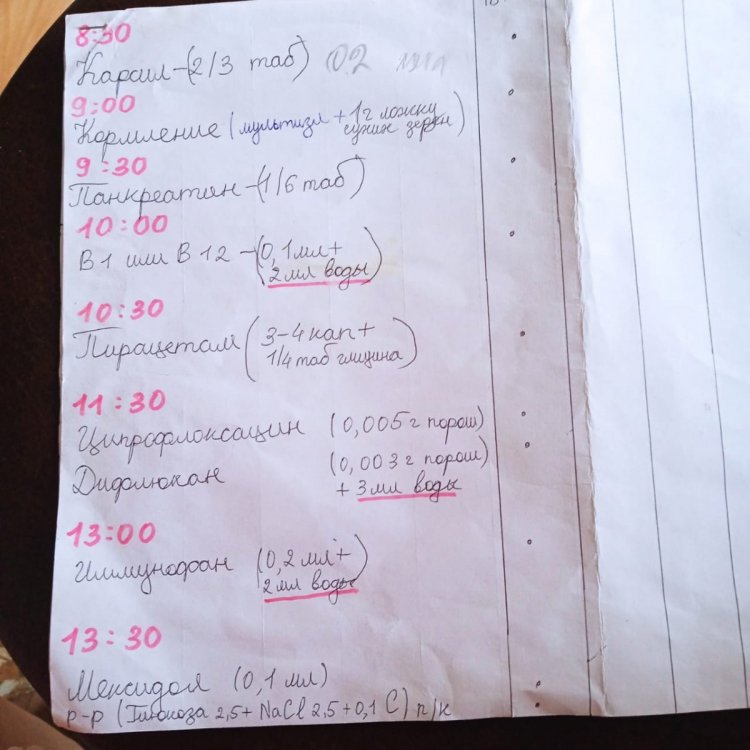 8:30
Карсил-(2/3 таб) 02
9:00
Кормление (мультизл + 1 г ложку
сухих зерен)
9:30
Панкреатин-(1/6 таб)
10:00
В1 или В12-(0,1мл+
2 мл воды)
10:30
Пирацетам (3-4 кап+
1/4 таб глицина)
11:30
Ципрофлоксацин (0,005 г порош)
Дифлюкан (0,003 г порош)
+ 3 мл воды
13:00
Иммунофан (0,2 мл+
2 мл воды)
13:30
Мексидол (0,1 мл)
р-р (Глюкоза 2,5+ NaCl 2,5+0,1 С) п/к